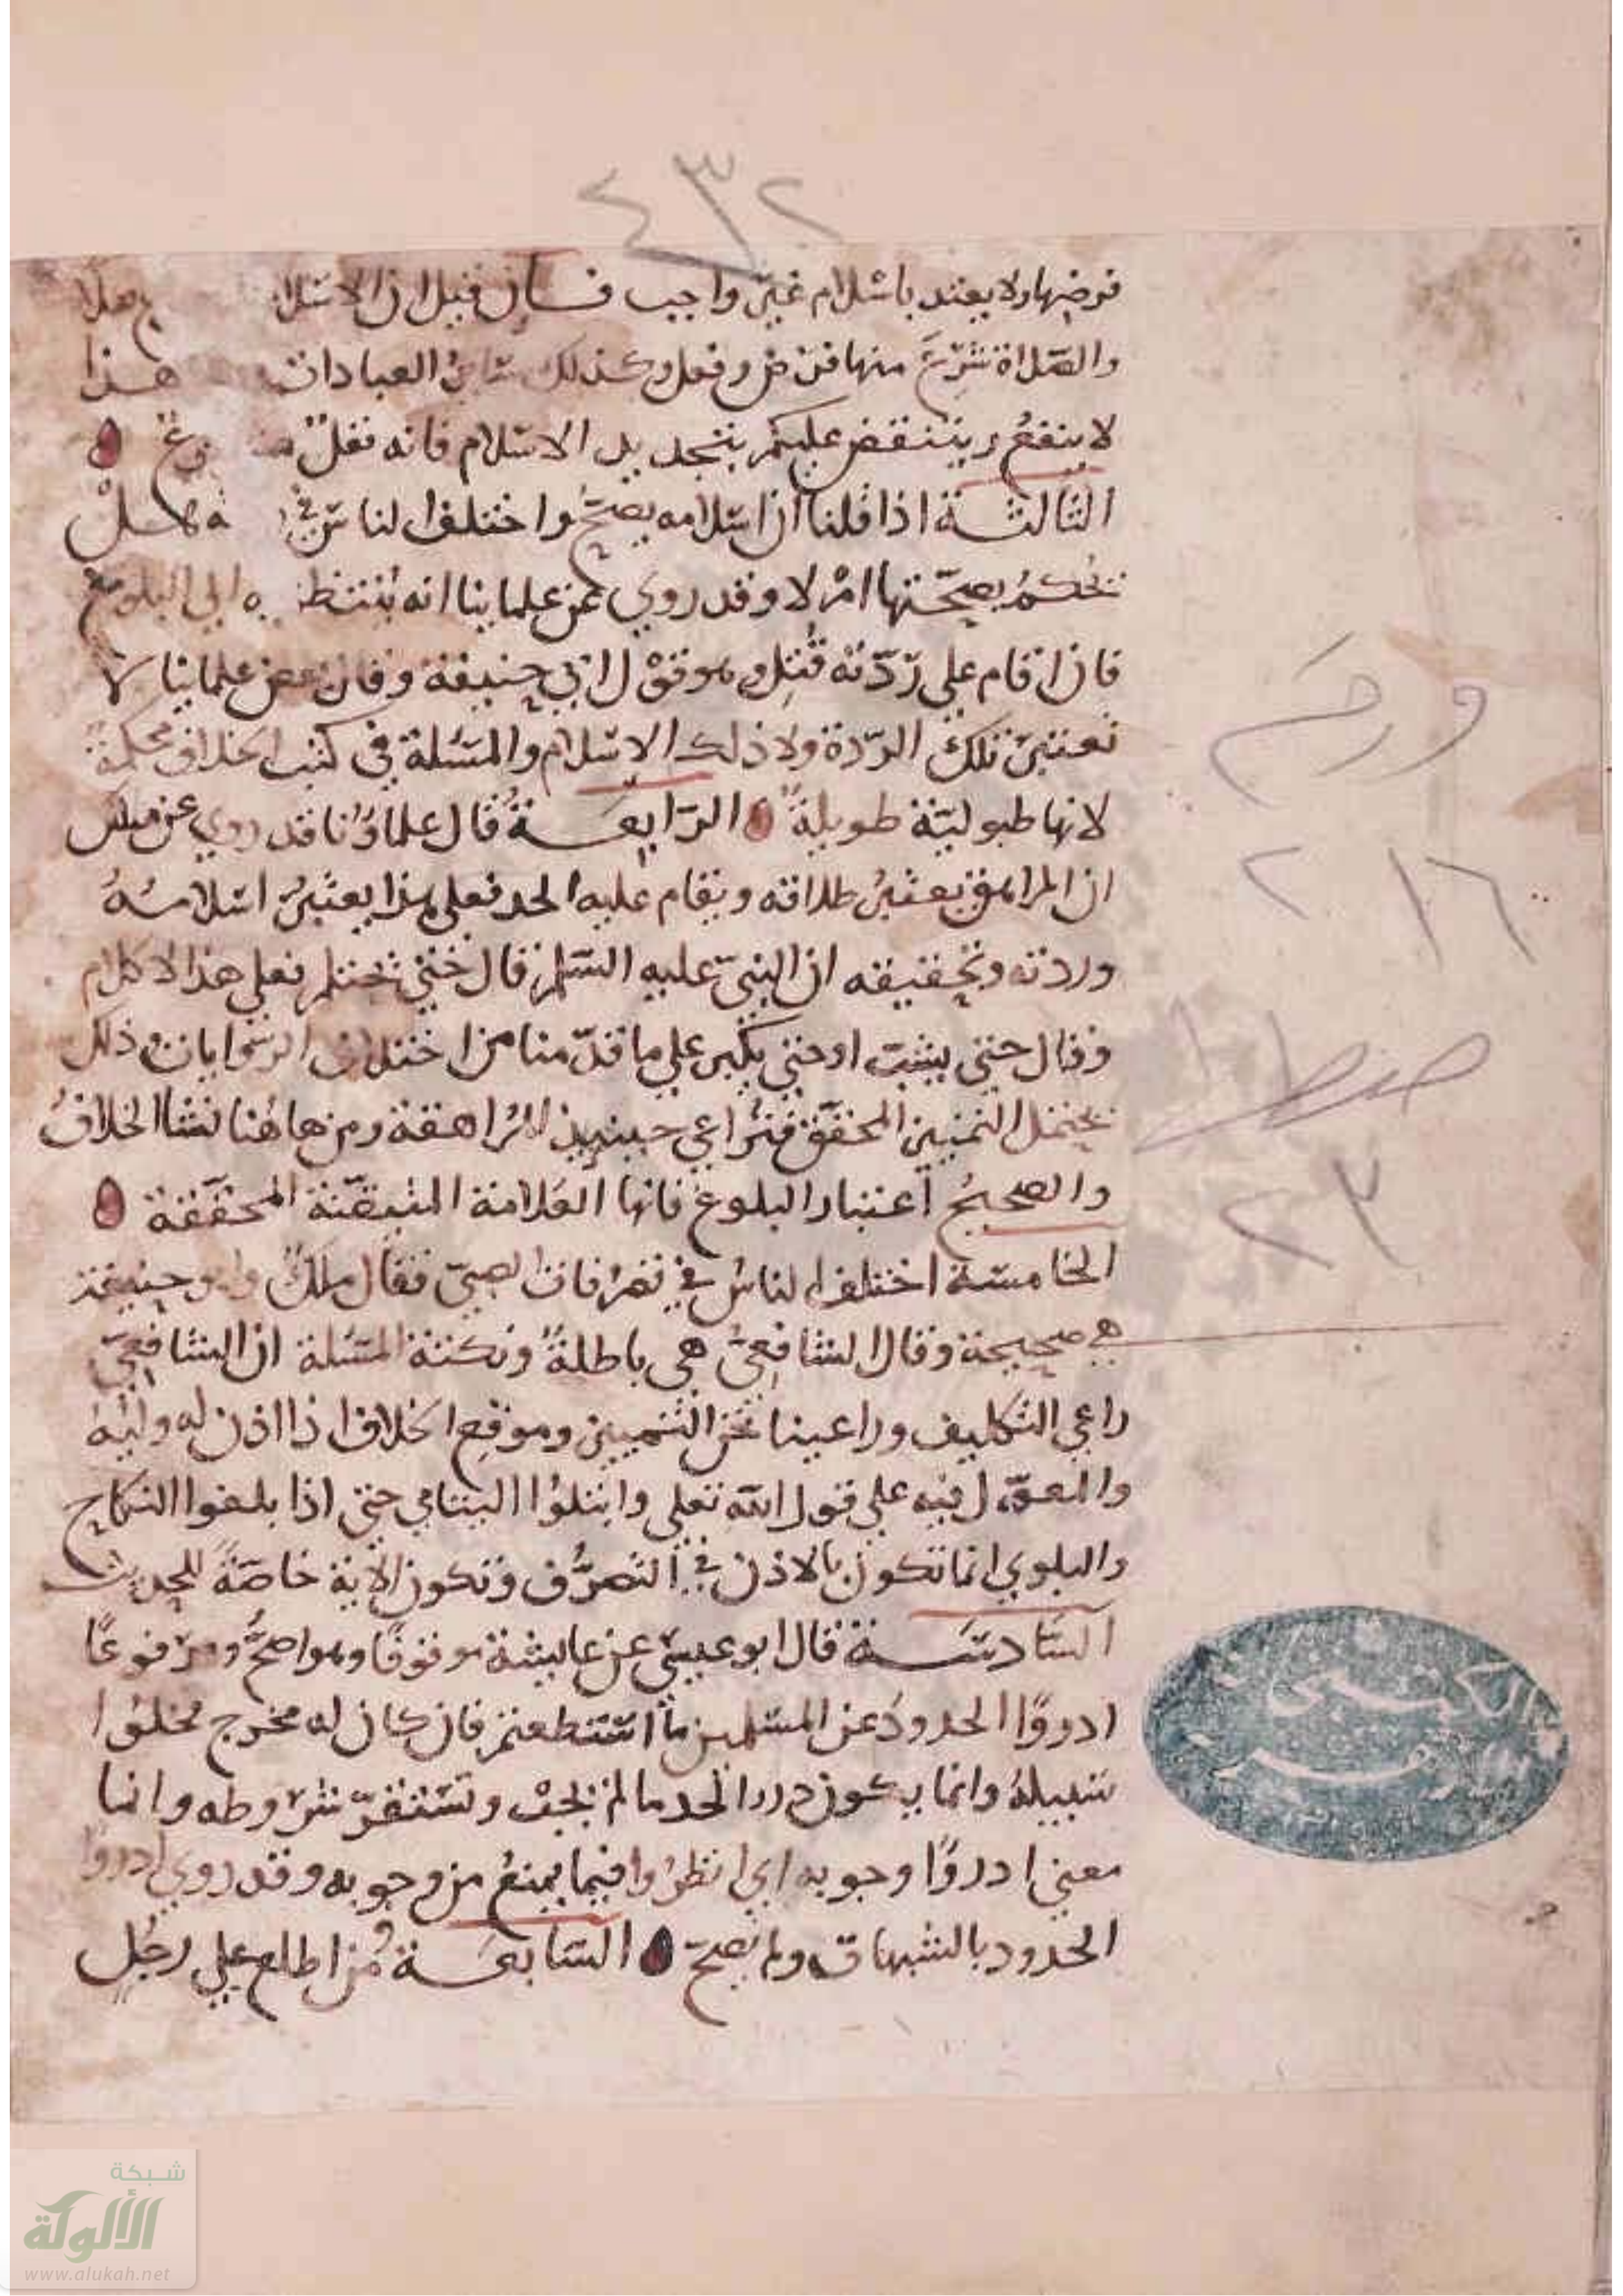 ٤٣٢
فرضها ولا يعتد باسلام غير واجب فـــان قيل ان الاسلا
والصلاة شرع منها فرض ونفل وكذلك سائر العبادات هذا
لا ينفع وينتقض عليكم بتجديد الاسلام فانه نفل
الثالثــة اذا قلنا ان اسلامه يصح واختلف الناس في هل
نحكم بصحتها ام لا وقد روي عن علماينا انه ينتظر به الى البلوغ
فان اقام على ردته قتل وهو قول ابي حنيفة وقال بعض علماينا لا
تعتبر تلك الردة ولا ذلك الاسلام والمسئلة في كتب الخلاف محكمة
لانها طبولية طويلة الرابعــة قال علماؤنا قد روي عن ملك
ان المراهق يعتبر طلاقه ويقام عليه الحد فعلى هذا يعتبر اسلامه
وردته وتحقيقه ان النبي عليه السلم قال حتى يحتلم فعلى هذا لا كلام
وقال حتى يشب او حتى يكبر على ما قدمنا من اختلاف الروايات وذلك
يحتمل التمييز المحقق فتراعى حينيذ المراهقة ومن هاهنا نشا الخلاف
والصحيح اعتبار البلوغ فانها العلامة المتيقنة المحققة
الخامسة اختلف الناس في تصرفات الصبي فقال ملك وابو حنيفة
هي صحيحة وقال الشافعي هي باطلة ونكتة المسئلة ان الشافعي
راعى التكليف وراعينا نحن التمييز وموقع الخلاف اذا اذن له وليه
والمعول فيه على قول الله تعلى وابتلوا اليتامى حتى اذا بلغوا النكاح
والبلوى انما تكون بالاذن في التصرف وتكون الاية خاصة للحديث
السادســة قال ابو عيسى عن عايشة موقوفا وهو اصح ومرفوعا
ادروا الحدود عن المسلمين ما استطعتم فان كان له مخرج فخلوا
سبيله وانما يكون درء الحد ما لم يجب وتستقر شروطه وانما
معنى ادروا وجوبه اي انظروا فيما يمنع من وجوبه وقد روي ادروا
الحدود بالشبهات ولم يصح السابعــة من اطلع على رجل
٢١٦
٢٣
شبكة
الألوكة
www.alukah.net